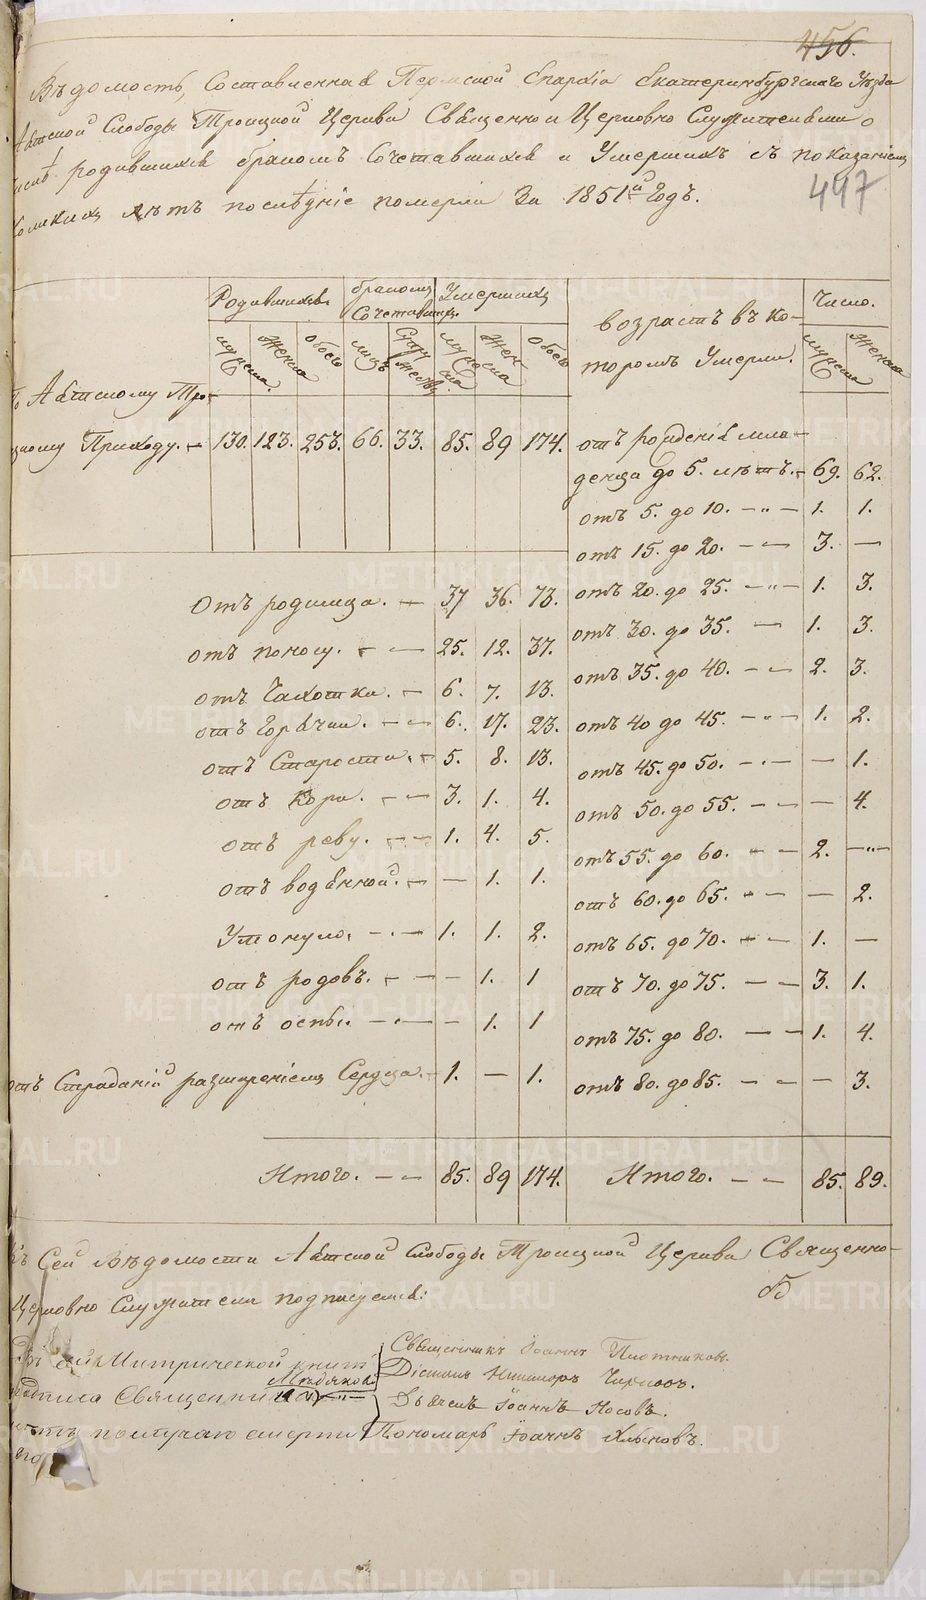 456.
Вѣдомость, Составленная Пермской Епархіи Екатеринбургскаго Уѣзда
Аятской Слободы Троицкой Церкви Священно и Церковно Служителями о
числѣ родившихся бракомъ Сочетавшихся и Умершихъ съ показаніемъ
коликихъ лѣтъ послѣдніе померли За 1851й Годъ.
497
Родившихся
бракомъ Сочетавшихся
Умершихъ
возрастъ въ которомъ Умерли.
Число.
мужеска.
Женска
Обоего
лицъ
Супружествъ
мужеска
Женска
Обоего
мужеска
Женска
Аятскому Тро-
ицкому Приходу. — 130. 123. 253. 66. 33. 85. 89 174.
отъ рожденія мла-
денца до 5. лѣтъ. — 69. 62.
отъ 5. до 10. — „ — 1. 1.
отъ 15. до 20. — — 3. —
отъ 20. до 25. — „ — 1. 3.
отъ 30. до 35. — 1. 3.
отъ 35. до 40. — — 2. 3.
отъ 40 до 45. — „ — 1. 2.
отъ 45. до 50. — . — — 1.
отъ 50. до 55. — — — 4.
отъ 55. до 60. — — 2. —„—
отъ 60. до 65. — — — 2.
отъ 65. до 70. — — 1. —
отъ 70. до 75. — — 3. 1.
отъ 75. до 80. — — 1. 4.
отъ 80. до 85. — — — 3.
Отъ родимца. — 37 36. 73.
отъ поносу. — — 25. 12. 37.
отъ Чахотки. — 6. 7. 13.
отъ Горячки. — — 6. 17. 23.
отъ Старости. — 5. 8. 13.
отъ Кори. — — 3. 1. 4.
отъ реву. — — 1. 4. 5.
отъ водяной. — — 1. 1.
Утонуло. — . — 1. 1. 2.
отъ родовъ. — — — 1. 1
отъ оспы. — . — — 1. 1
отъ Страданій расширеніемъ Сердца. — 1. — 1.
Итого. — — 85. 89 174.
Итого. — — 85. 89.
Къ Сей Вѣдомости Аятской Слободы Троицкой Церкви Священно-
Церковно Служители подписуемся:
Священникъ Іоаннъ Плотниковъ.
Діаконъ Никаноръ Чирковъ.
Дьячекъ Іоаннъ Носовъ.
Пономарь Іоаннъ Хлыновъ.
Въ сей Митрической книгѣ
подписа Священника
по случаю смерти
его
METRIKI.GASO-URAL.RU